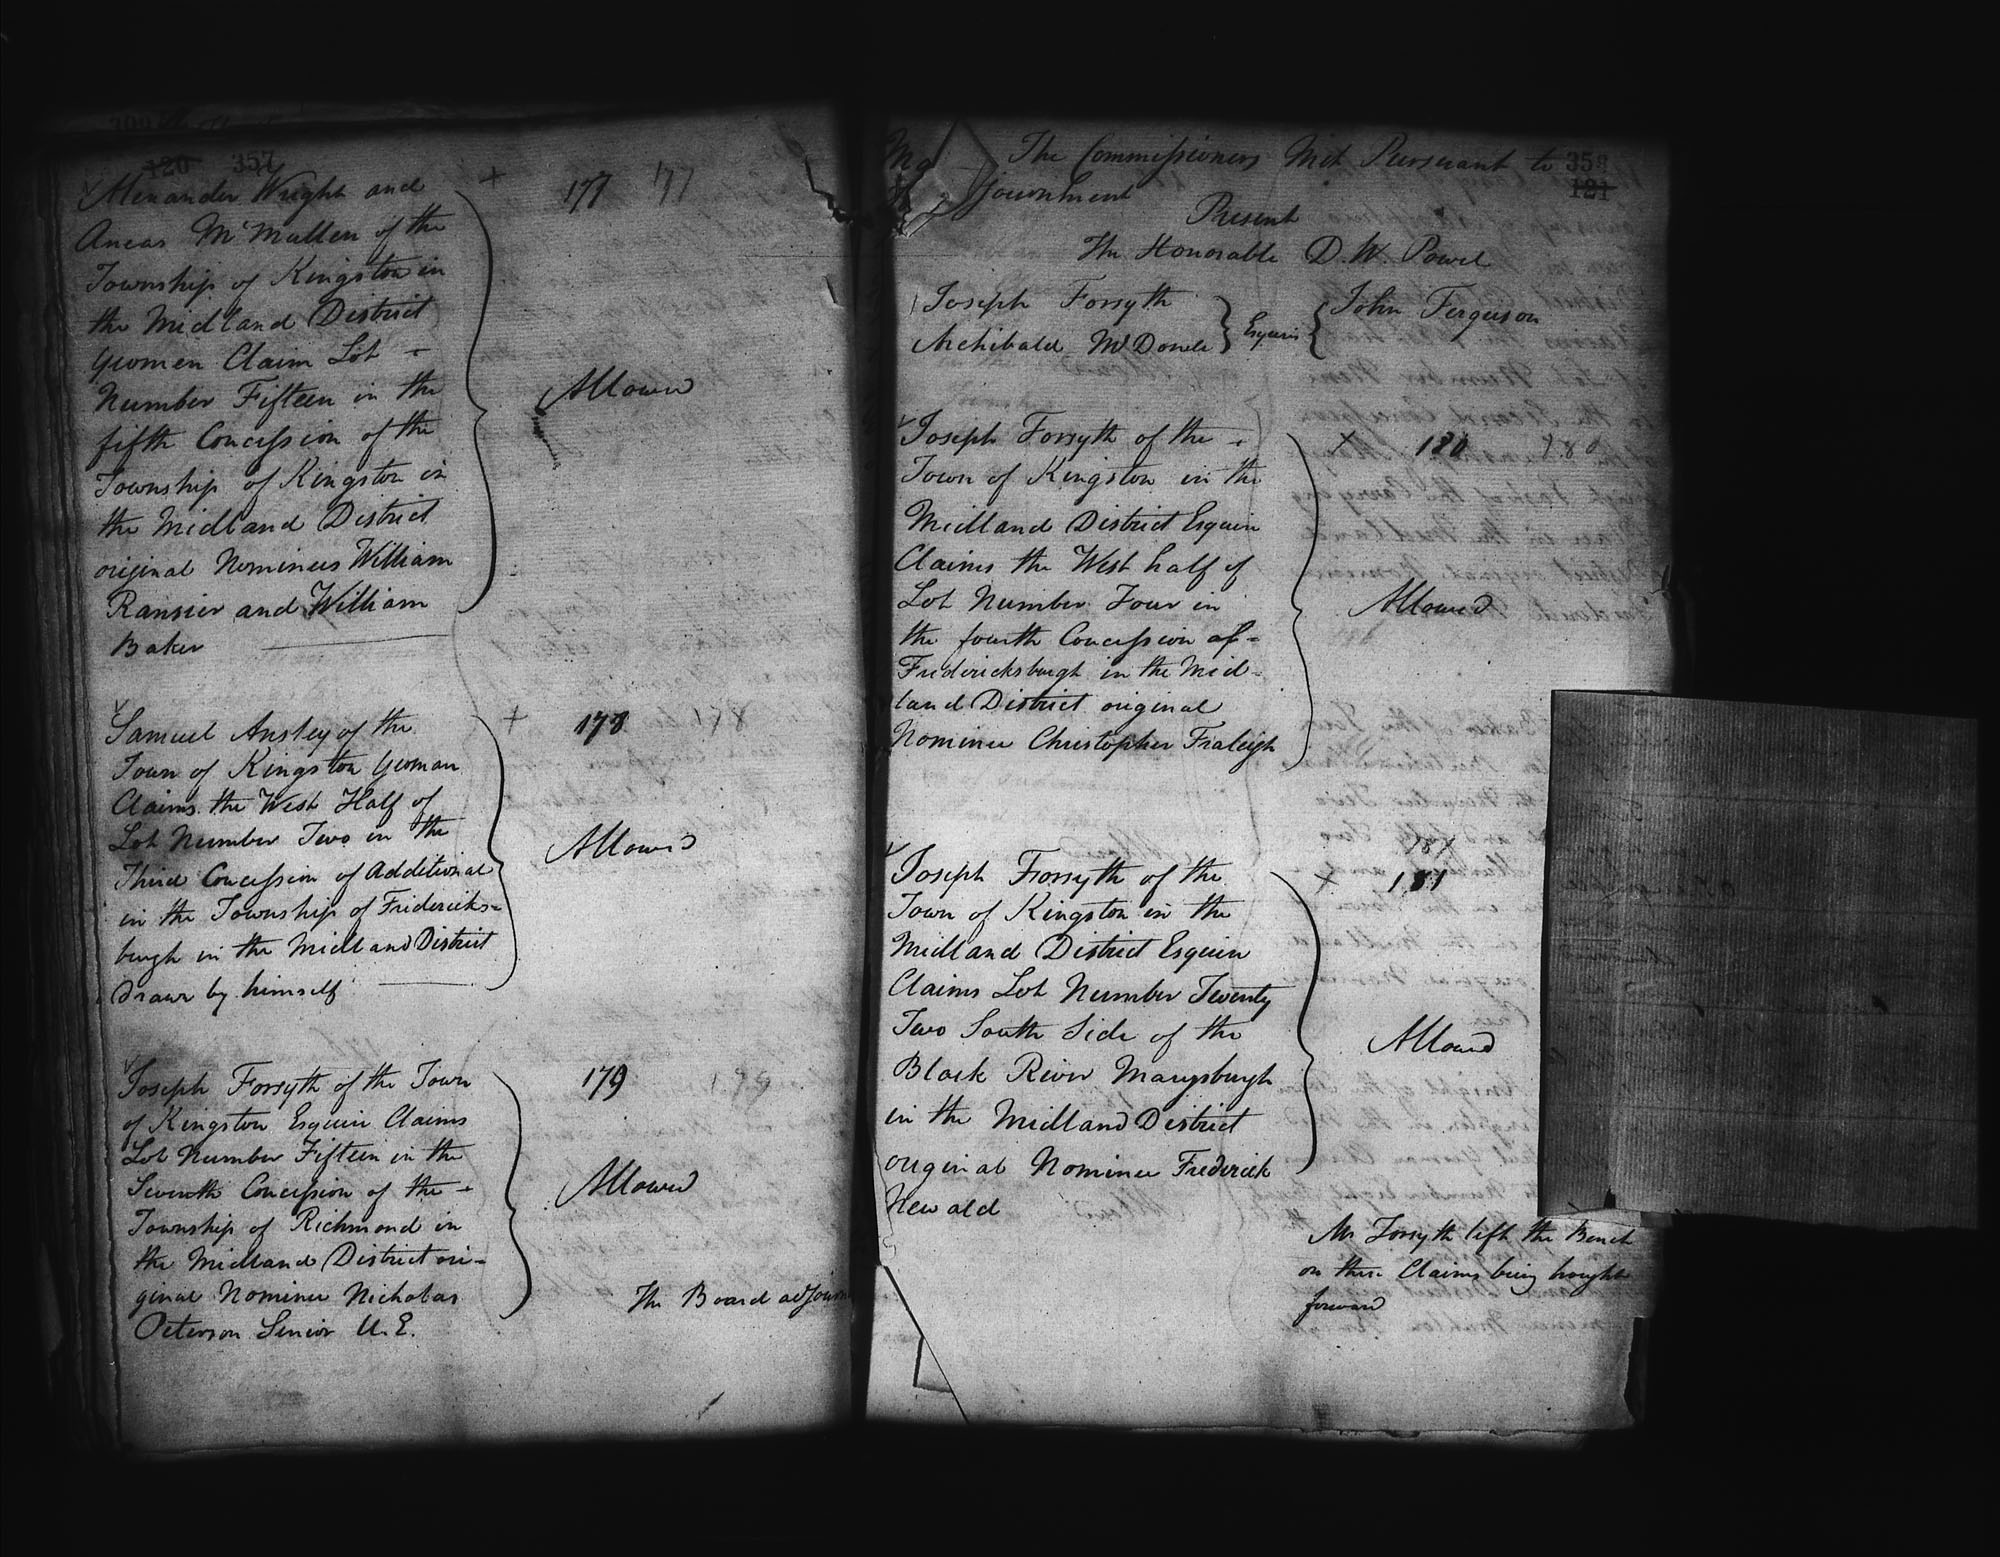 120 357
Alexander Wright and
Aneas McMullen of the
Township of Kingston in
the Midland District
Yeomen Claim Lot -
Number Fifteen in the
fifth Concession of the
Township of Kingston in
the Midland District
original Nominees William
Ransier and William
Baker
+ 177 177
Allowed
Samuel Anstey of the
Town of Kingston Yeoman
Claims the West Half of
Lot Number Two in the
Third Concession of Additional
in the Township of Fredericks=
burgh in the Midland District
drawn by himself
+ 178 178
Allowed
Joseph Forsyth of the Town
of Kingston Esquire Claims
Lot Number Fifteen in the
Seventh Concession of the -
Township of Richmond in
the Midland District ori=
ginal Nominee Nicholas
Peterson Senior U.E.
179 179
Allowed
The Board adjourn
358
121
The Commissioners Met Pursuant to
journment
Present
The Honorable D. W. Powel
Joseph Forsyth
Archibald McDonell
Esquires
John Ferguson
Joseph Forsyth of the -
Town of Kingston in the
Midland District Esquire
Claims the West half of
Lot Number Four in
the fourth Concession of=
Fredericksburgh in the Mid=
land District original
Nominee Christopher Fraleigh
+ 180 180
Allowed
Joseph Forsyth of the
Town of Kingston in the
Midland District Esquire
Claims Lot Number Twenty
Two South Side of the
Black River Marysburgh
in the Midland District
original Nominee Frederick
Newald
181
+ 181
Allowed
Mr Forsyth left the Bench
on these Claims being brought
forward